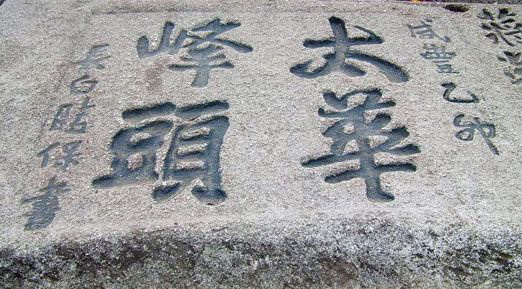 咸豐乙卯
太華
峰頭
長白保書